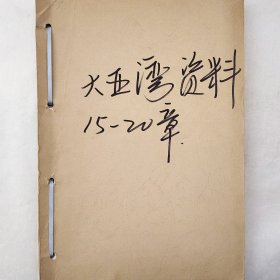 大亚湾资料
15-20章